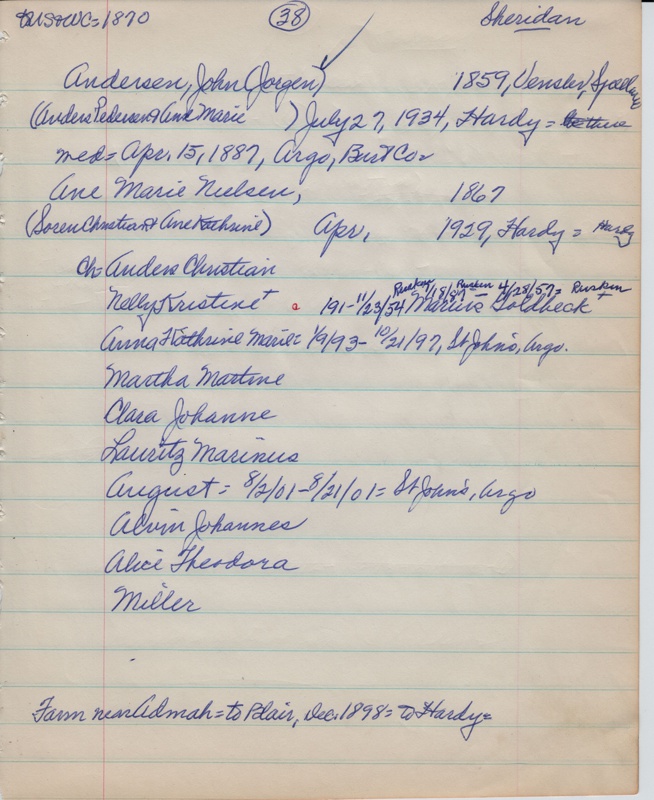 US&WC=1870 38 Sheridan
Andersen, John (Jorgen) 1859, Venslev,
(Anders Pedersen & Ane Marie ) July 27, 1934, Hardy=
med= Apr. 15, 1887, Argo, Burt Co=
Ane Marie Nielsen, 1867
(Soren Christian & Ane Kathrine) Apr, 1929, Hardy = Hardy
Ch= Anders Christian
Ruskin, 4/28/57= Ruskin
Nelly Kristine+ 191-11/23/54 Marius Goldbeck+
Anna Kathrine Marie= 1/9/93-10/21/97, St John's, Argo.
Martha Martine
Clara Johanne
Lauritz Marinus
August= 8/2/01-8/21/01= St John's, Argo
Alvin Johannes
Alice Theodora
Miller
Farm near Admah= to Blair, Dec. 1898= to Hardy=